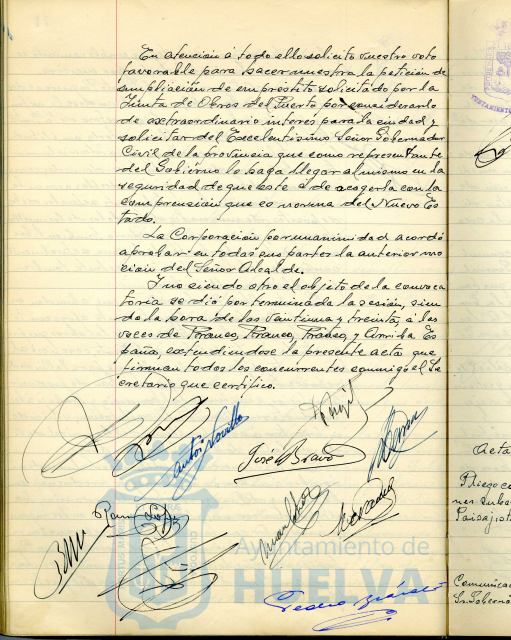 En atencion á todo ello solicito vuestro voto
favorable para hacer nuestra la peticion de
ampliación de empréstito solicitado por la
Junta de Obras del Puerto por considerarlo
de extraordinario interés para la ciudad y
solicitar del Excelentisimo Señor Gobernador
Civil de la provincia que como representante
del Gobierno lo haga llegar al mismo en la
seguridad de que este á de acogerla con la
comprensión que es norma del Nuevo Es
tado.
La Corporación por unanimidad acordó
aprobar en todas sus partes la anterior mo
cion del Señor Alcalde.
Y no siendo otro el objeto de la convoca
toria se dió por terminada la sesión, sien
do la hora de las veintiuna y treinta, á las
voces de Franco, Franco, Franco, y Arriba Es
paña, extendiendose la presente acta que
firman todos los concurrentes conmigo el Se
cretario que certifico.
José Bravo
Ayuntamiento de
HUELVA
Pedro
Acta
Pliego co
nes suba
Paisajist
Comunicac
Sr. Goberna